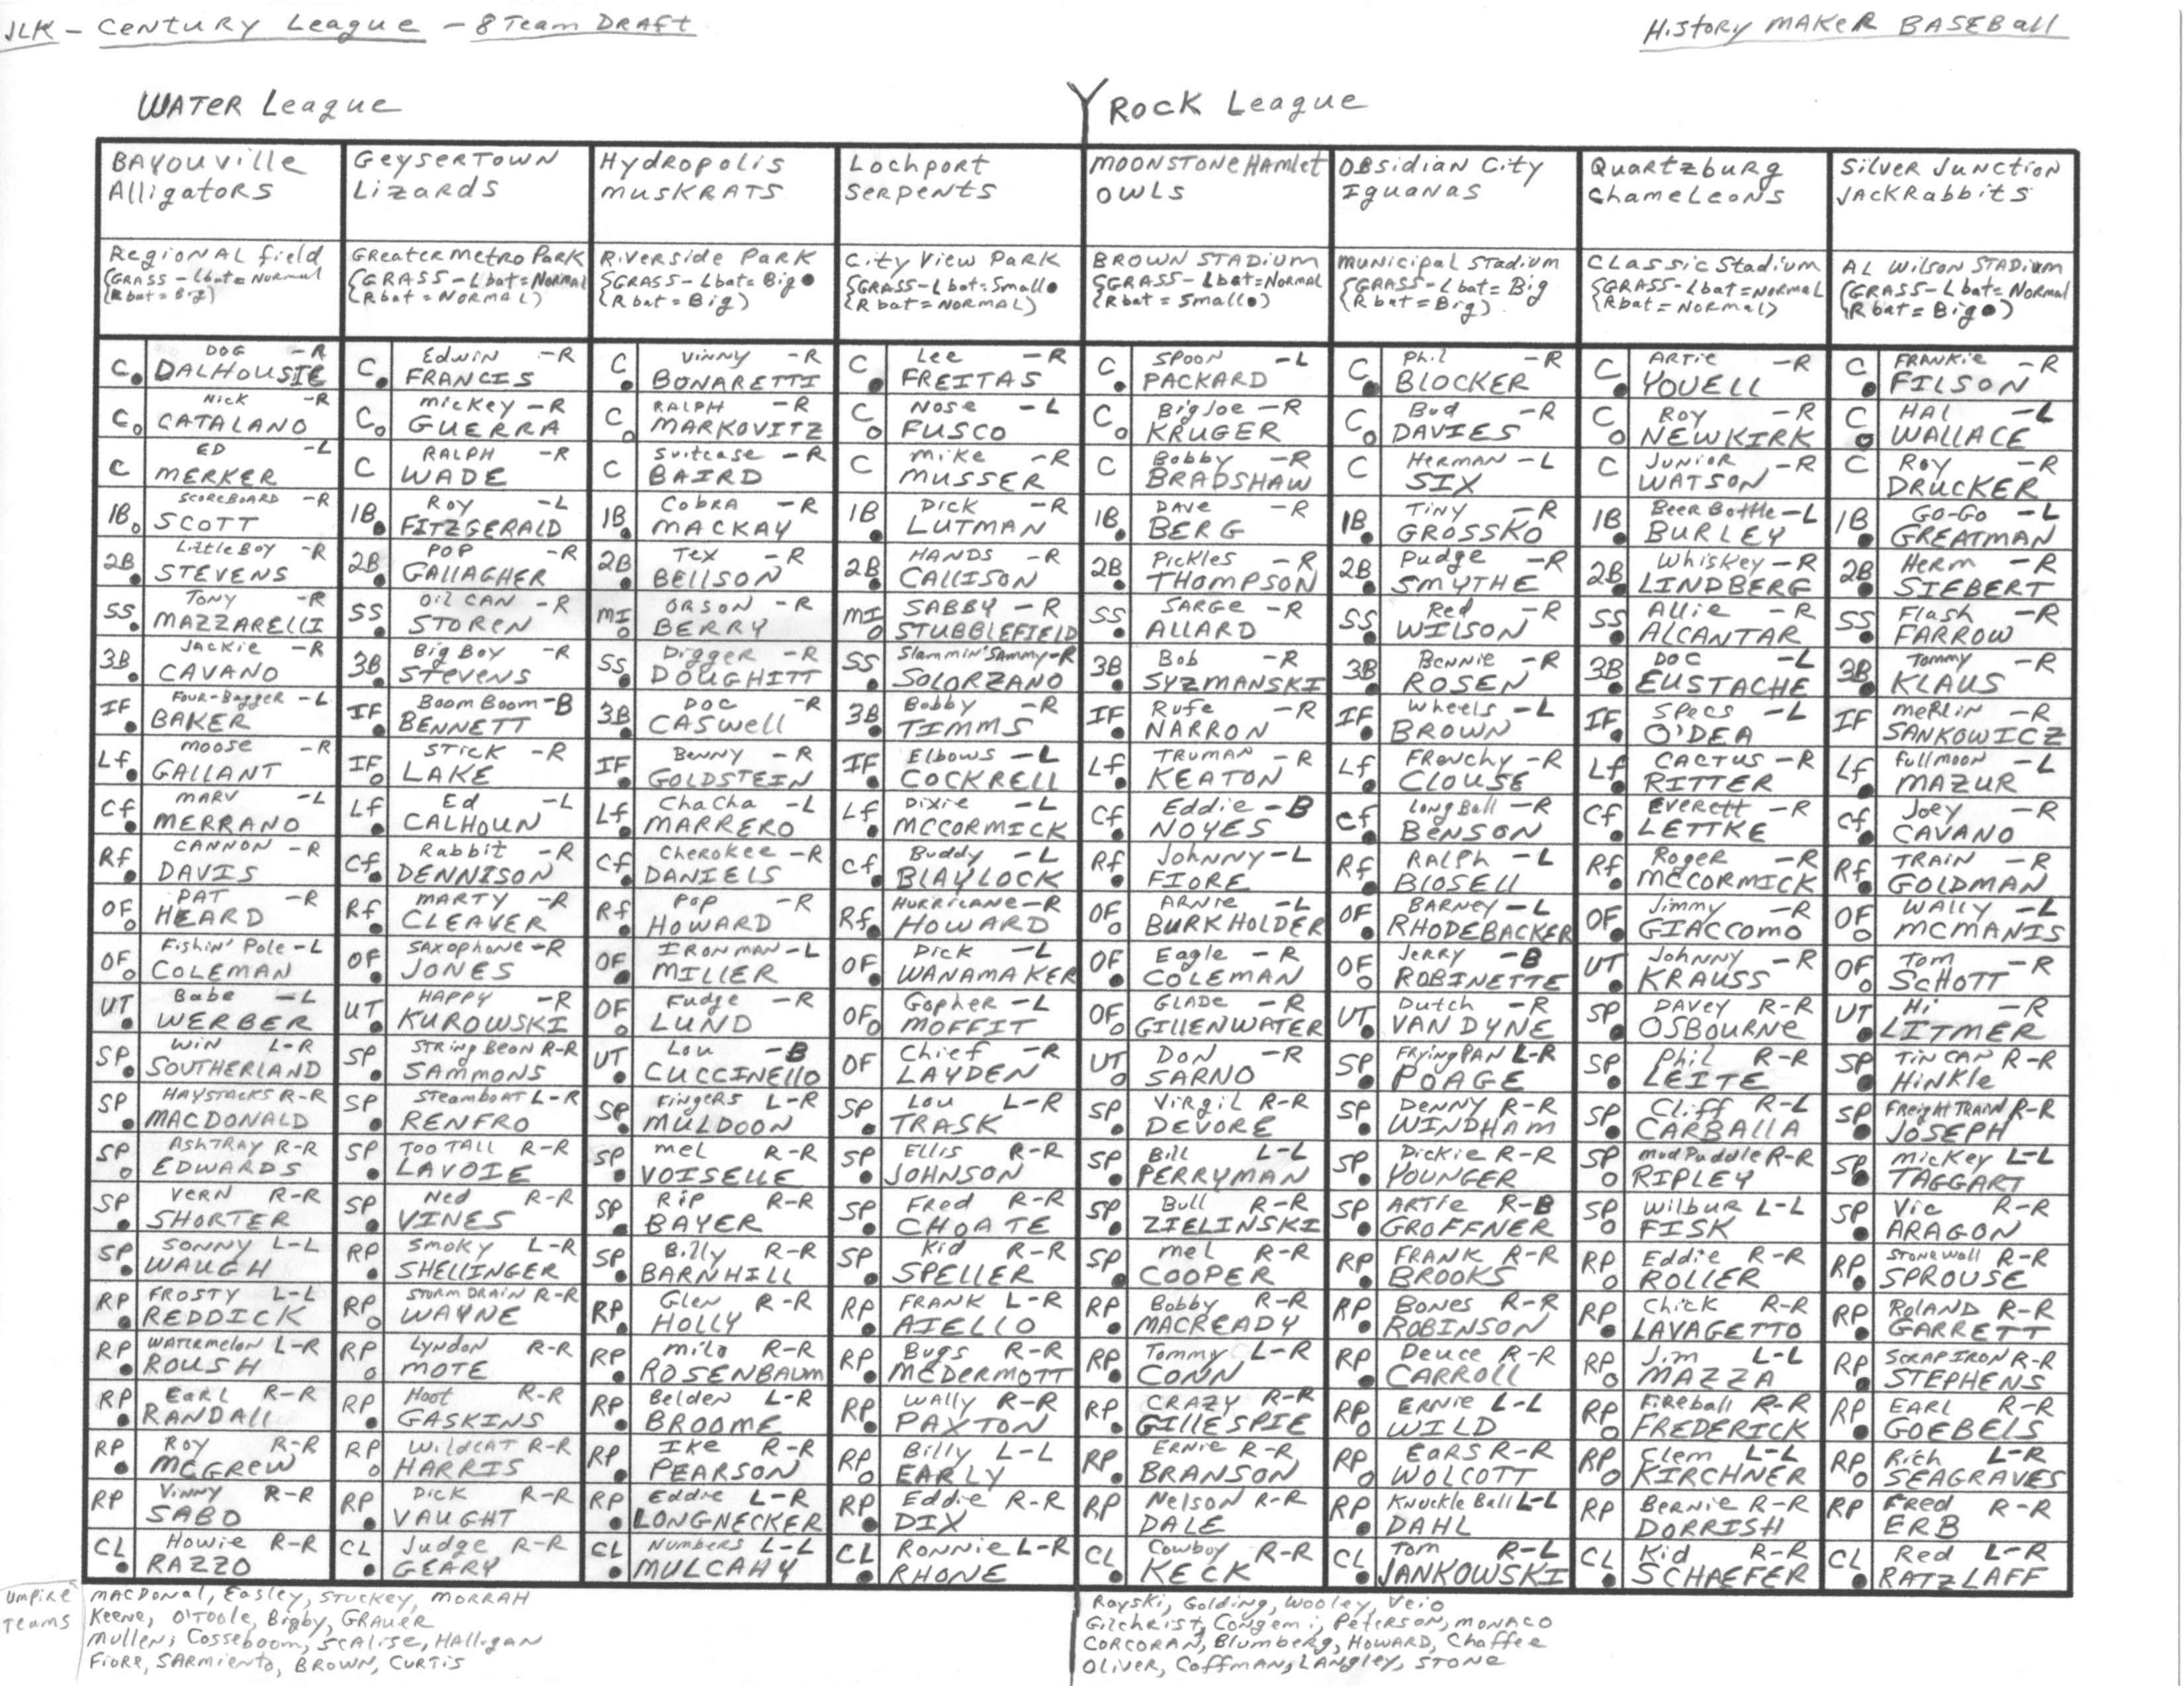 JLK - Century League - 8 Team Draft
History Maker Baseball
Water League
Rock League
Bayouville Alligators | Geysertown Lizards | Hydropolis Muskrats | Lochport Serpents | Moonstone Hamlet Owls | Obsidian City Iguanas | Quartzburg Chameleons | Silver Junction Jackrabbits
Regional Field (Grass - Lbat = Normal (Rbat = Big) | Greater Metro Park (Grass - Lbat = Normal (Rbat = Normal) | Riverside Park (Grass - Lbat = Big (Rbat = Big) | City View Park (Grass - Lbat = Small (Rbat = Normal) | Brown Stadium (Grass - Lbat = Normal (Rbat = Small) | Municipal Stadium (Grass - Lbat = Big (Rbat = Big) | Classic Stadium (Grass - Lbat = Normal (Rbat = Normal) | Al Wilson Stadium (Grass - Lbat = Normal (Rbat = Big)
C Dog Dalhousie -R | C Edwin Francis -R | C Vinny Bonaretti -R | C Lee Freitas -R | C Spoon Packard -L | C Phil Blocker -R | C Artie Youell -R | C Frankie Filson -R
C Nick Catalano -R | C Mickey Guerra -R | C Ralph Markovitz -R | C Nose Fusco -L | C Big Joe Kruger -R | C Bud Davies -R | C Roy Newkirk -R | C Hal Wallace -L
C Ed Merker -L | C Ralph Wade -R | C Suitcase Baird -R | C Mike Musser -R | C Bobby Bradshaw -R | C Herman Six -L | C Junior Watson -R | C Roy Drucker -R
1B Scoreboard Scott -R | 1B Roy Fitzgerald -L | 1B Cobra Mackay -R | 1B Dick Lutman -R | 1B Dave Berg -R | 1B Tiny Grossko -R | 1B Beer Bottle Burley -L | 1B Go-Go Greatman -L
2B Little Boy Stevens -R | 2B Pop Gallagher -R | 2B Tex Bellson -R | 2B Hands Callison -R | 2B Pickles Thompson -R | 2B Pudge Smythe -R | 2B Whiskey Lindberg -R | 2B Herm Siebert -R
SS Tony Mazzarelli -R | SS Oil Can Storen -R | MI Orson Berry -R | MI Sabby Stubblefield -R | SS Sarge Allard -R | SS Red Wilson -R | SS Allie Alcantar -R | SS Flash Farrow -R
3B Jackie Cavano -R | 3B Big Boy Stevens -R | SS Digger Doughitt -R | SS Slammin' Sammy Solorzano -R | 3B Bob Syzmanski -R | 3B Bennie Rosen -R | 3B Doc Eustache -L | 3B Tommy Klaus -R
IF Four-Bagger Baker -L | IF Boom Boom Bennett -B | 3B Doc Caswell -R | 3B Bobby Timms -R | IF Rufe Narron -R | IF Wheels Brown -L | IF Specs O'Dea -L | IF Merlin Sankowicz -R
LF Moose Gallant -R | IF Stick Lake -R | IF Benny Goldstein -R | IF Elbows Cockrell -L | LF Truman Keaton -R | LF Frenchy Clouse -R | LF Cactus Ritter -R | LF Full moon Mazur -L
CF Marv Merrano -L | LF Ed Calhoun -L | LF ChaCha Marrero -L | LF Dixie McCormick -L | CF Eddie Noyes -B | CF Long Ball Benson -R | CF Everett Lettke -R | CF Joey Cavano -R
RF Cannon Davis -R | CF Rabbit Dennison -R | CF Cherokee Daniels -R | CF Buddy Blaylock -L | RF Johnny Fiore -L | RF Ralph Blosell -L | RF Roger McCormick -R | RF Train Goldman -R
OF Pat Heard -R | RF Marty Cleaver -R | RF Pop Howard -R | RF Hurricane Howard -R | OF Arnie Burkholder -L | OF Barney Rhodebacker -L | OF Jimmy Giaccomo -R | OF Wally McManis -L
OF Fishin' Pole Coleman -L | OF Saxophone Jones -R | OF Ironman Miller -L | OF Dick Wanamaker -L | OF Eagle Coleman -R | OF Jerry Robinette -B | UT Johnny Krauss -R | OF Tom Schott -R
UT Babe Werber -L | UT Happy Kurowski -R | OF Fudge Lund -R | OF Gopher Moffit -L | OF Glade Gillenwater -R | UT Dutch Van Dyne -R | SP Davey Osbourne R-R | UT Hi Litmer -R
SP Win Southerland L-R | SP String Bean Sammons R-R | UT Lou Cuccinello -B | OF Chief Layden -R | UT Don Sarno -R | SP Frying Pan Poage L-R | SP Phil Leite R-R | SP Tin Can Hinkle R-R
SP Haystacks MacDonald R-R | SP Steamboat Renfro L-R | SP Fingers Muldoon L-R | SP Lou Trask L-R | SP Virgil Devore R-R | SP Denny Windham R-R | SP Cliff Carballa R-L | SP Freight Train Joseph R-R
SP Ashtray Edwards R-R | SP Too Tall Lavoie R-R | SP Mel Voiselle R-R | SP Ellis Johnson R-R | SP Bill Perryman L-L | SP Dickie Younger R-R | SP Mud Puddle Ripley R-R | SP Mickey Taggart L-L
SP Vern Shorter R-R | SP Ned Vines R-R | SP Rip Bayer R-R | SP Fred Choate R-R | SP Bull Zielinski R-R | SP Artie Groffner R-B | SP Wilbur Fisk L-L | SP Vic Aragon R-R
SP Sonny Waugh L-L | RP Smoky Shellinger L-R | SP Billy Barnhill R-R | SP Kid Speller R-R | SP Mel Cooper R-R | RP Frank Brooks R-R | RP Eddie Roller R-R | RP Stonewall Sprouse R-R
RP Frosty Reddick L-L | RP Storm Drain Wayne R-R | RP Glen Holly R-R | RP Frank Aiello L-R | RP Bobby Macready R-R | RP Bones Robinson R-R | RP Chick Lavagetto R-R | RP Roland Garrett R-R
RP Watermelon Roush L-R | RP Lyndon Mote R-R | RP Milo Rosenbaum R-R | RP Bugs McDermott R-R | RP Tommy Conn L-R | RP Deuce Carroll R-R | RP Jim Mazza L-L | RP Scrap Iron Stephens R-R
RP Earl Randall R-R | RP Hoot Gaskins R-R | RP Belden Broome L-R | RP Wally Paxton R-R | RP Crazy Gillespie R-R | RP Ernie Wild L-L | RP Fireball Frederick R-R | RP Earl Goebels R-R
RP Roy McGrew R-R | RP Wildcat Harris R-R | RP Ike Pearson R-R | RP Billy Early L-L | RP Ernie Branson R-R | RP Ears Wolcott R-R | RP Clem Kirchner L-L | RP Rich Seagraves L-R
RP Vinny Sabo R-R | RP Dick Vaught R-R | RP Eddie Longnecker L-R | RP Eddie Dix R-R | RP Nelson Dale R-R | RP Knuckle Ball Dahl L-L | RP Bernie Dorrish R-R | RP Fred Erb R-R
CL Howie Razzo R-R | CL Judge Geary R-R | CL Numbers Mulcahy L-L | CL Ronnie Rhone L-R | CL Cowboy Keck R-R | CL Tom Jankowski R-L | CL Kid Schaefer R-R | CL Red Ratzlaff L-R
Umpire Teams
MacDonal, Easley, Stuckey, Morrah
Keene, O'Toole, Bigby, Grauer
Mullen, Cosseboom, Scalise, Halligan
Fiore, Sarmiento, Brown, Curtis
Rayski, Golding, Wooley, Veio
Gilchrist, Congemi, Peterson, Monaco
Corcoran, Blumberg, Howard, Chaffee
Oliver, Coffman, Langley, Stone